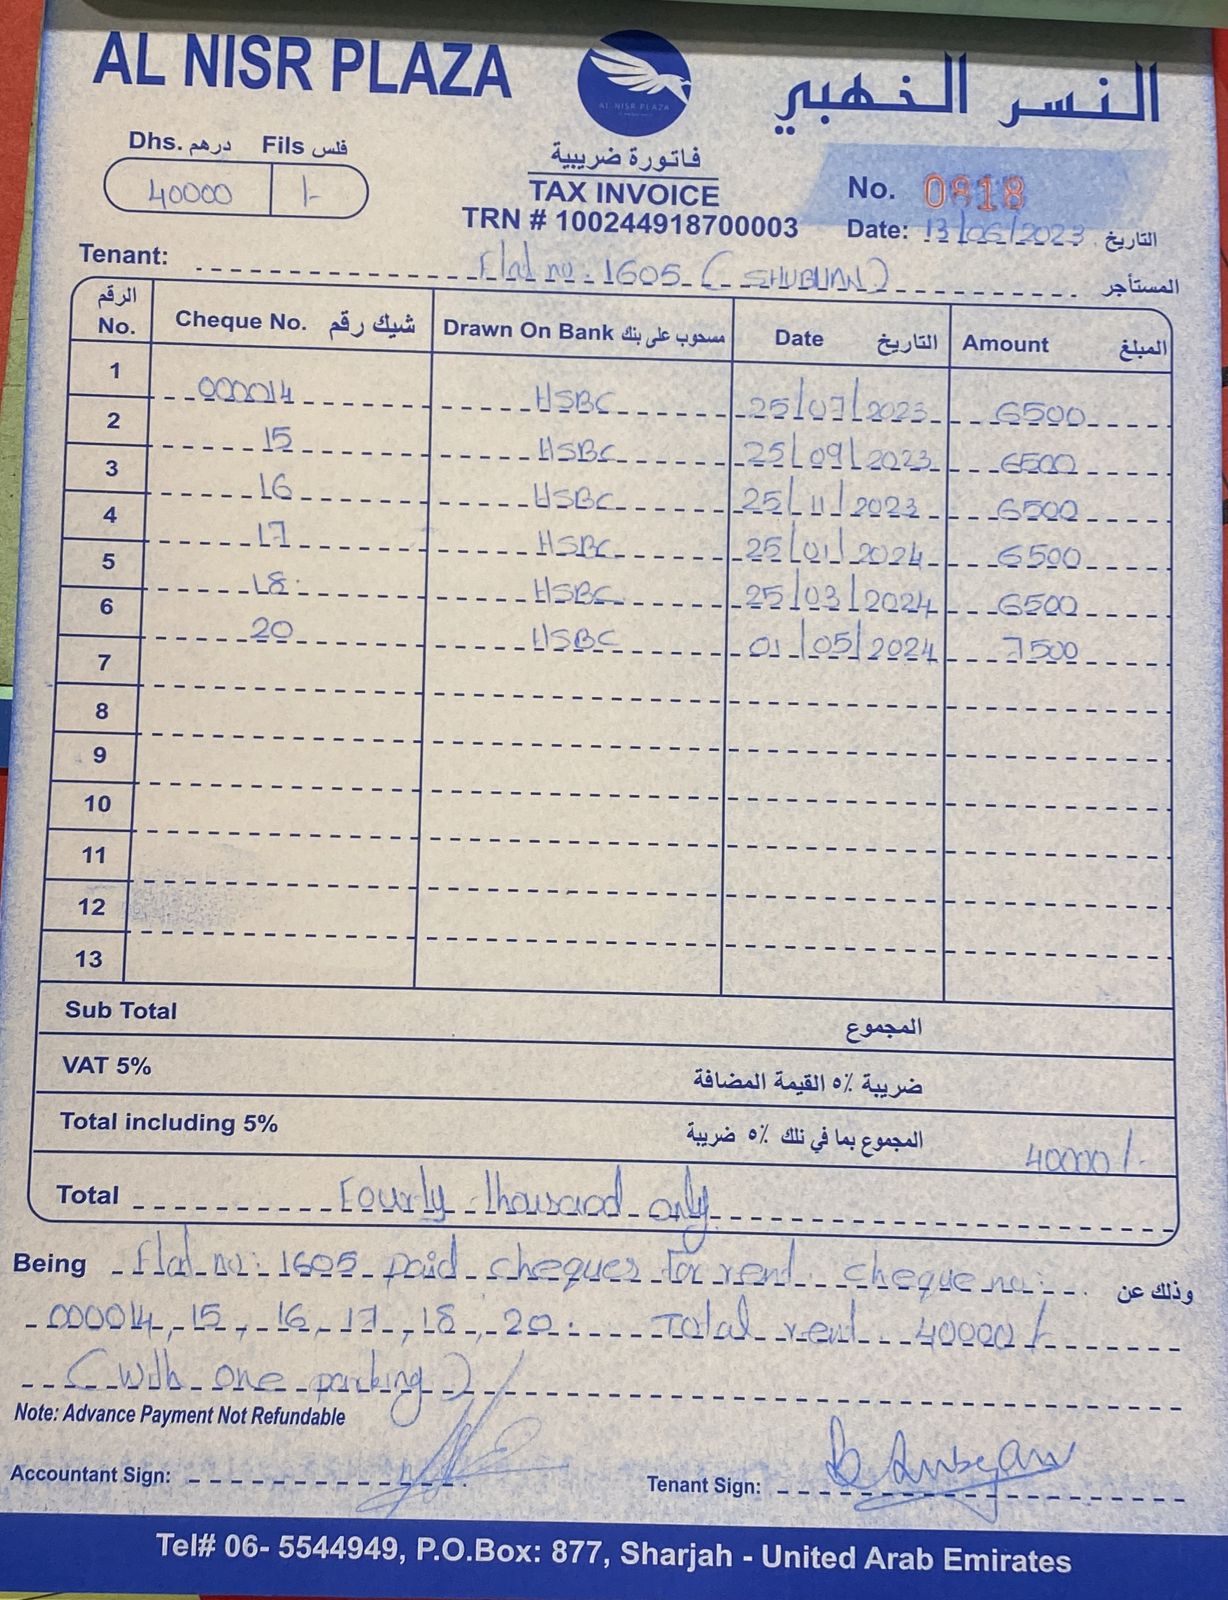 AL NISR PLAZA
AL NISR PLAZA
النسر الخهبي
Dhs. درهم Fils فلس
40000 /-
فاتورة ضريبية
TAX INVOICE
TRN # 100244918700003
No. 0818
Date: 13/06/2023 التاريخ
Tenant: Flat no. 1605 (SHUBHAN) المستأجر
الرقم No. Cheque No. شيك رقم Drawn On Bank مسحوب على بنك Date التاريخ Amount المبلغ
1 000014 HSBC 25/07/2023 6500
2 15 HSBC 25/09/2023 6500
3 16 HSBC 25/11/2023 6500
4 17 HSBC 25/01/2024 6500
5 18 HSBC 25/03/2024 6500
6 20 HSBC 01/05/2024 7500
7
8
9
10
11
12
13
Sub Total المجموع
VAT 5% ضريبة ٥٪ القيمة المضافة
Total including 5% المجموع بما في نلك ٥٪ ضريبة 40000/-
Total Fourty thousand only
Being Flat no: 1605 paid cheques for rent. cheque no: وذلك عن
000014, 15, 16, 17, 18, 20. Total rent 40000/-
(with one parking)
Note: Advance Payment Not Refundable
Accountant Sign: Tenant Sign:
Tel# 06- 5544949, P.O.Box: 877, Sharjah - United Arab Emirates